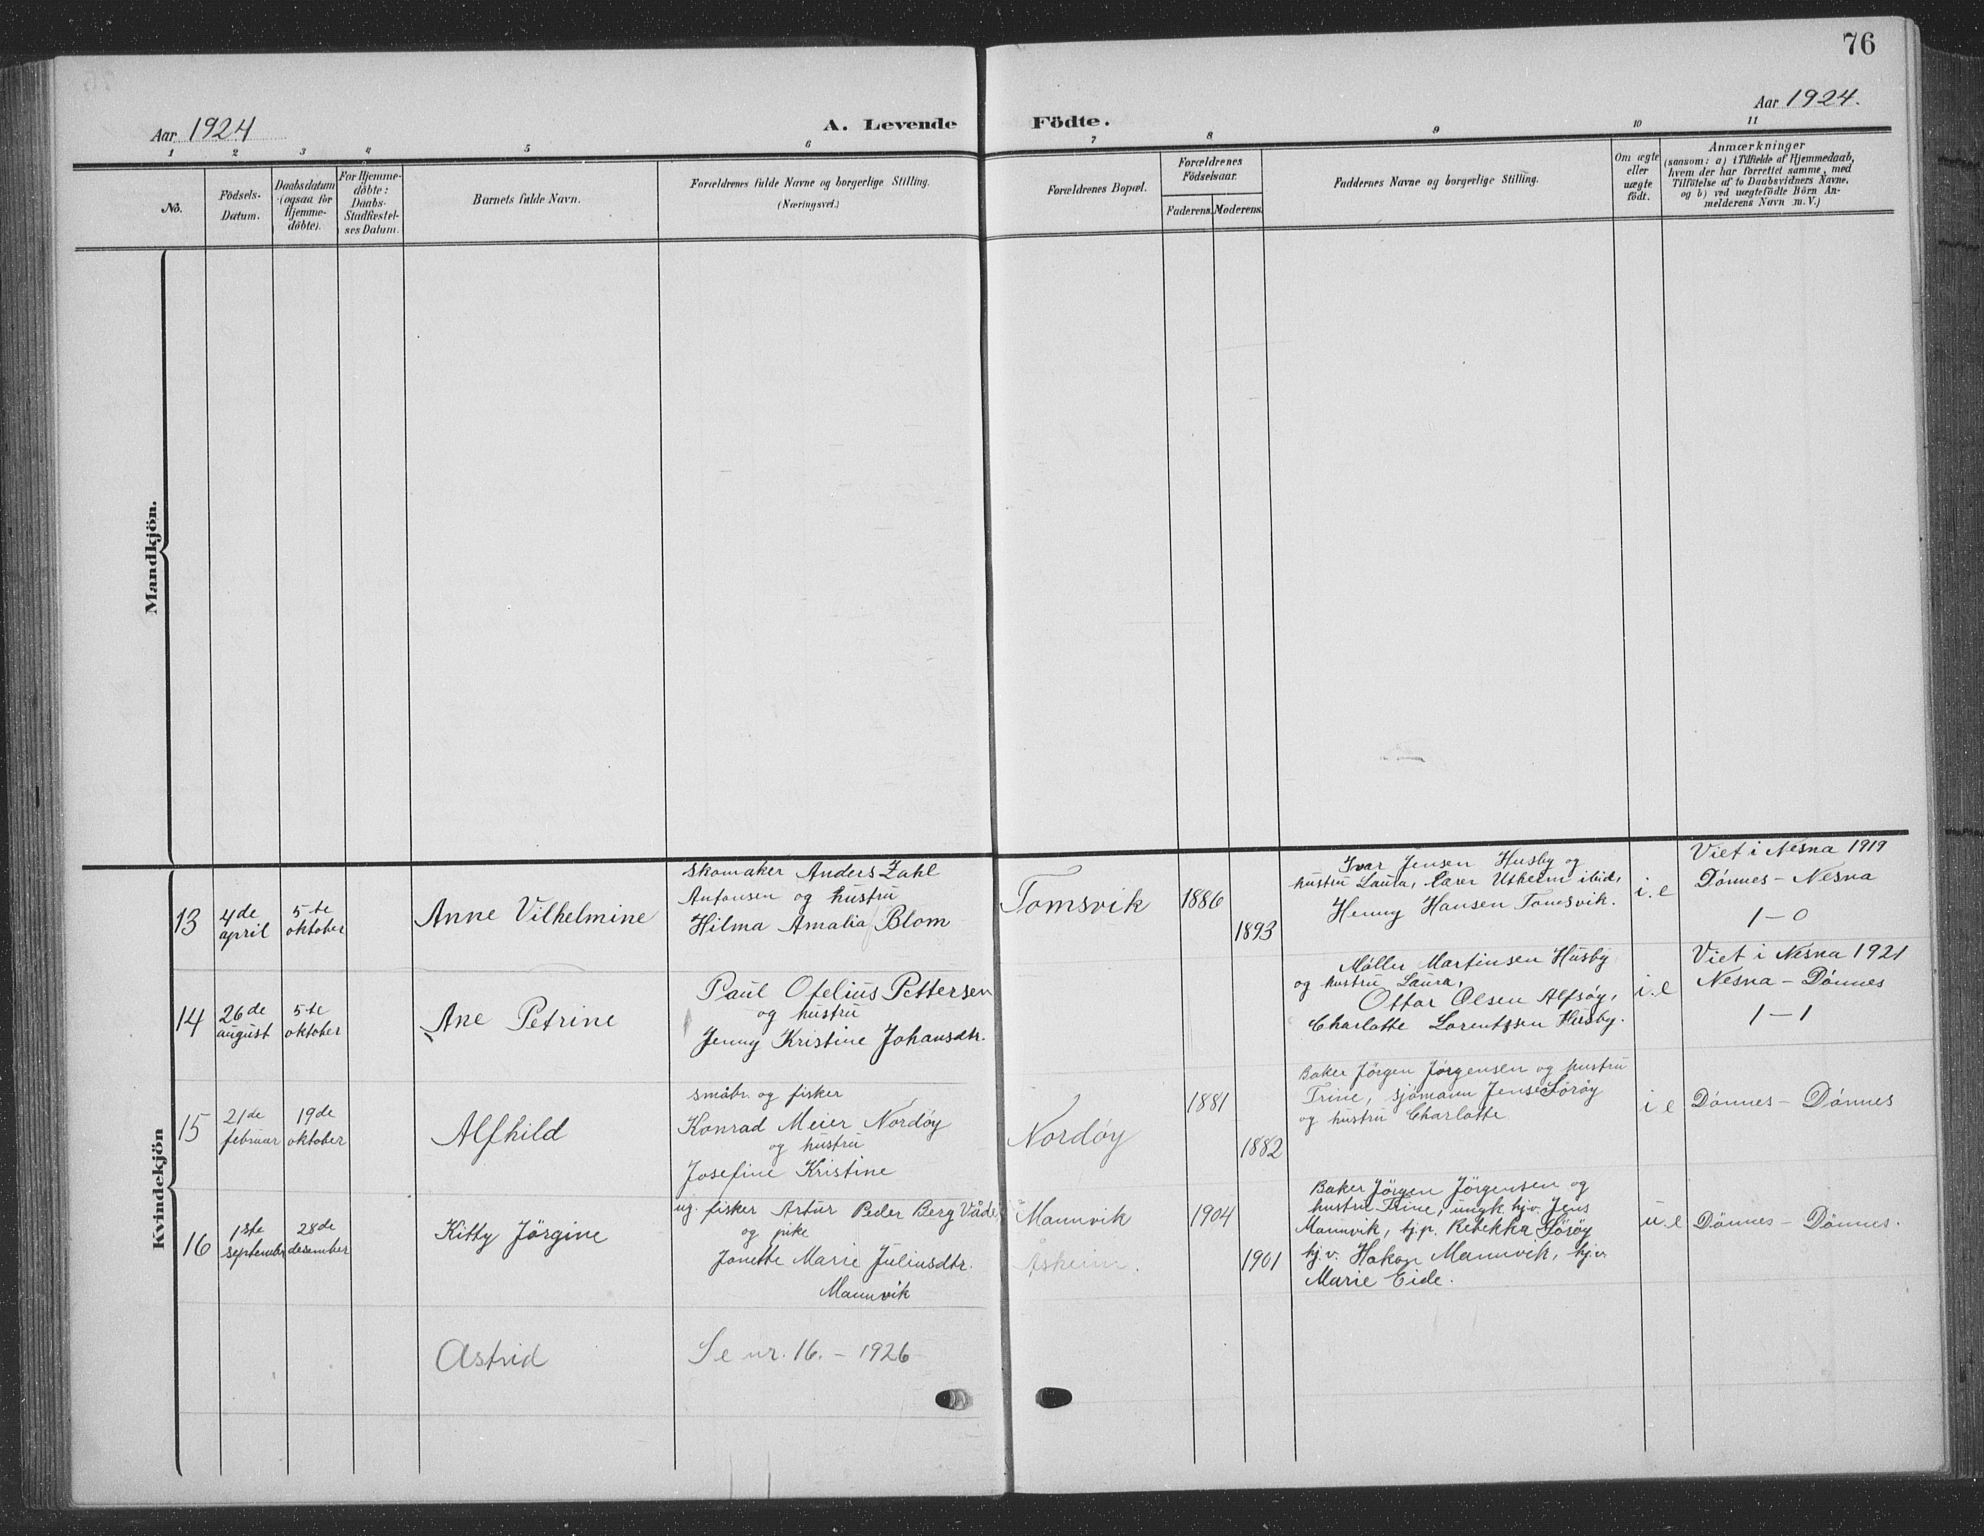 76
Aar 1924
A. Levende
Födte.
Aar 1924.
1 2 3 4 5 6 7 8 9 10 11
No.
Födsels-
Datum.
Daabsdatum
(ogsaa for
Hjemme-
døbte).
For Hjemme-
døbte:
Daabs-
Stadfæstel-
ses Datum.
Barnets fulde Navn.
Forældrenes fulde Navne og borgerlige Stilling.
(Næringsvei.)
Forældrenes Bopæl.
Forældrenes
Födselsaar.
Faderens. Moderens.
Faddernes Navne og borgerlige Stilling.
Om ægte
eller
uægte
födt.
Anmærkninger
(saasom: a) i Tilfælde af Hjemmedaab,
hvem der har forrettet samme, med
Tilføielse af to Daabsvidners Navne,
og b) ved uægtefödte Börn An-
melderens Navn m. V.)
Mandkjön.
Kvindekjön
13
4de
april
5-te
oktober
Anne Vilhelmine
Skomaker Anders Zahl
Antonsen og hustru
Hilma Amalia Blom
Tomsvik
1886
1893
Ivar Jensen Husby og
hustru Laura, lærer Utheim ibid,
Henny Hansen Tomsvik.
i.e
Viet i Nesna 1919
Dónnes - Nesna
1 - 0
14
26de
august
5-te
oktober
Ane Petrine
Paul Ofelius Pettersen
og hustru
Jenny Kristine Johansdtr.
Møller Martinsen Husby
og hustru Laura,
Ottar Olsen Alfsöy,
Charlotte Lorentzsen Husby.
i.e
Viet i Nesna 1921
Nesna - Dónnes
1 - 1
15
21de
februar
19de
oktober
Alfhild
småbr. og fisker
Konrad Meier Nordöy
og hustru
Josefine Kristine
Nordöy
1881
1882
Baker Jörgen Jörgensen og hustru
Trine, sjömann Jens Söröy
og hustru Charlotte
i e
Dónnes - Dónnes
16
1ste
september
28de
desember
Kitty Jörgine
ug. fisker Artur Peder Berg Våde,
og pike
Jonette Marie Juliusdtr.
Mannvik
Mannvik
Åsheim.
1904
1901
Baker Jörgen Jörgensen og
hustru Trine, ungk. hj.v. Jens
Mannvik, hj.p. Rebekka Söröy
hj.v. Hakon Mannvik, hj.v.
Marie Eide.
u.e
Dónnes - Dónnes.
Astrid
Se nr. 16. - 1926